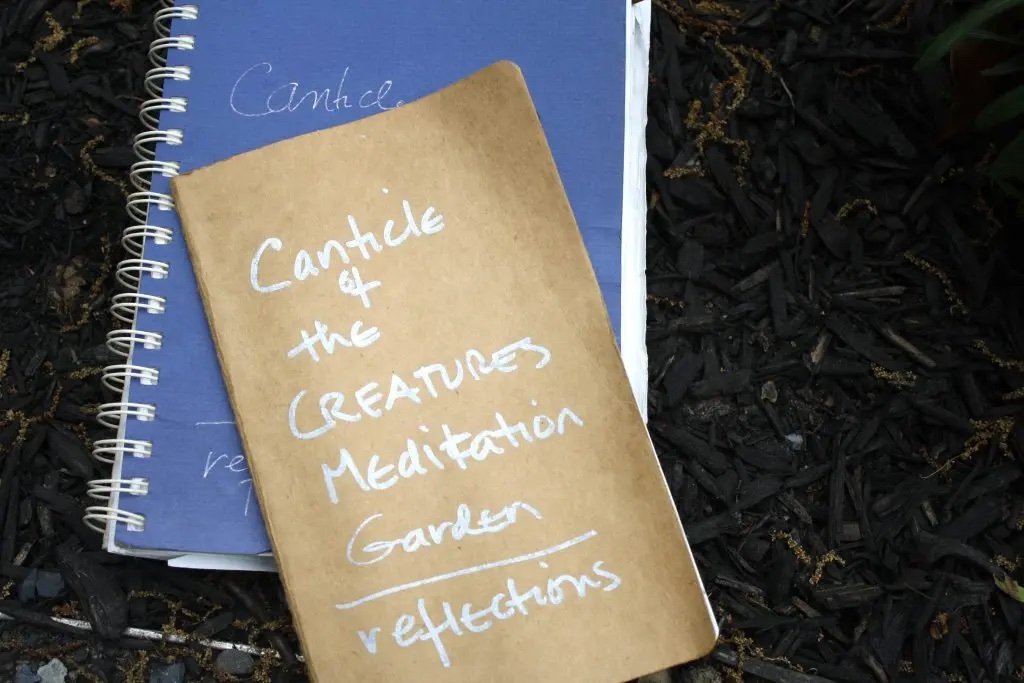 Canticle
Canticle
of
the
CREATURES
Meditation
Garden
reflections
re